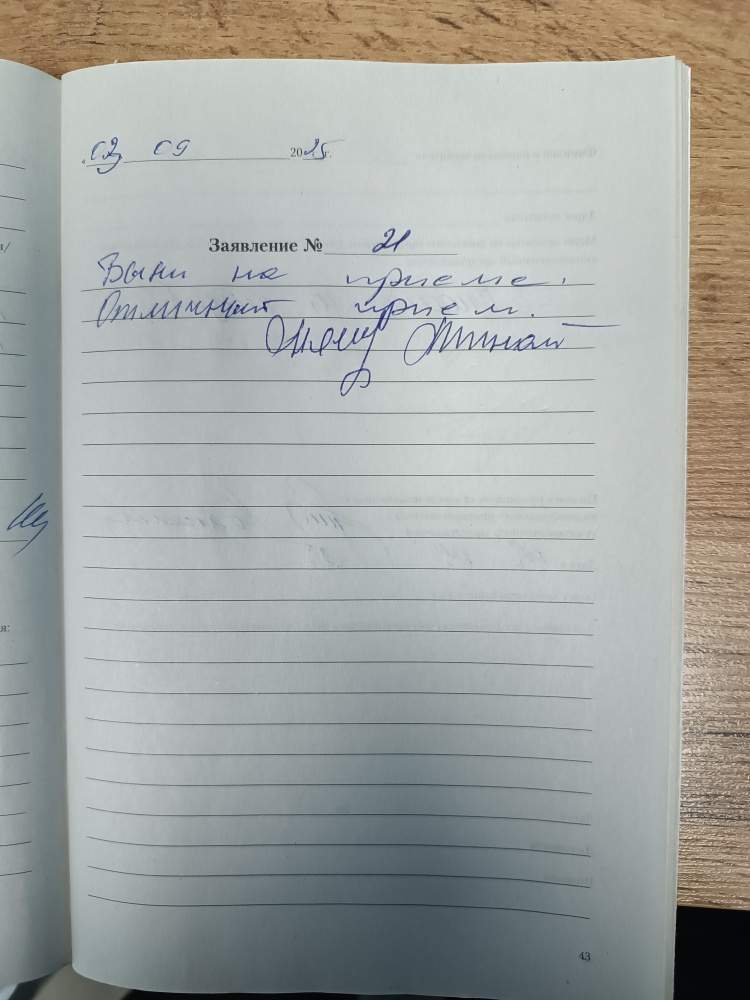 02 09 2025 г.
Заявление № 21
Были на приеме.
Отличный прием.
43